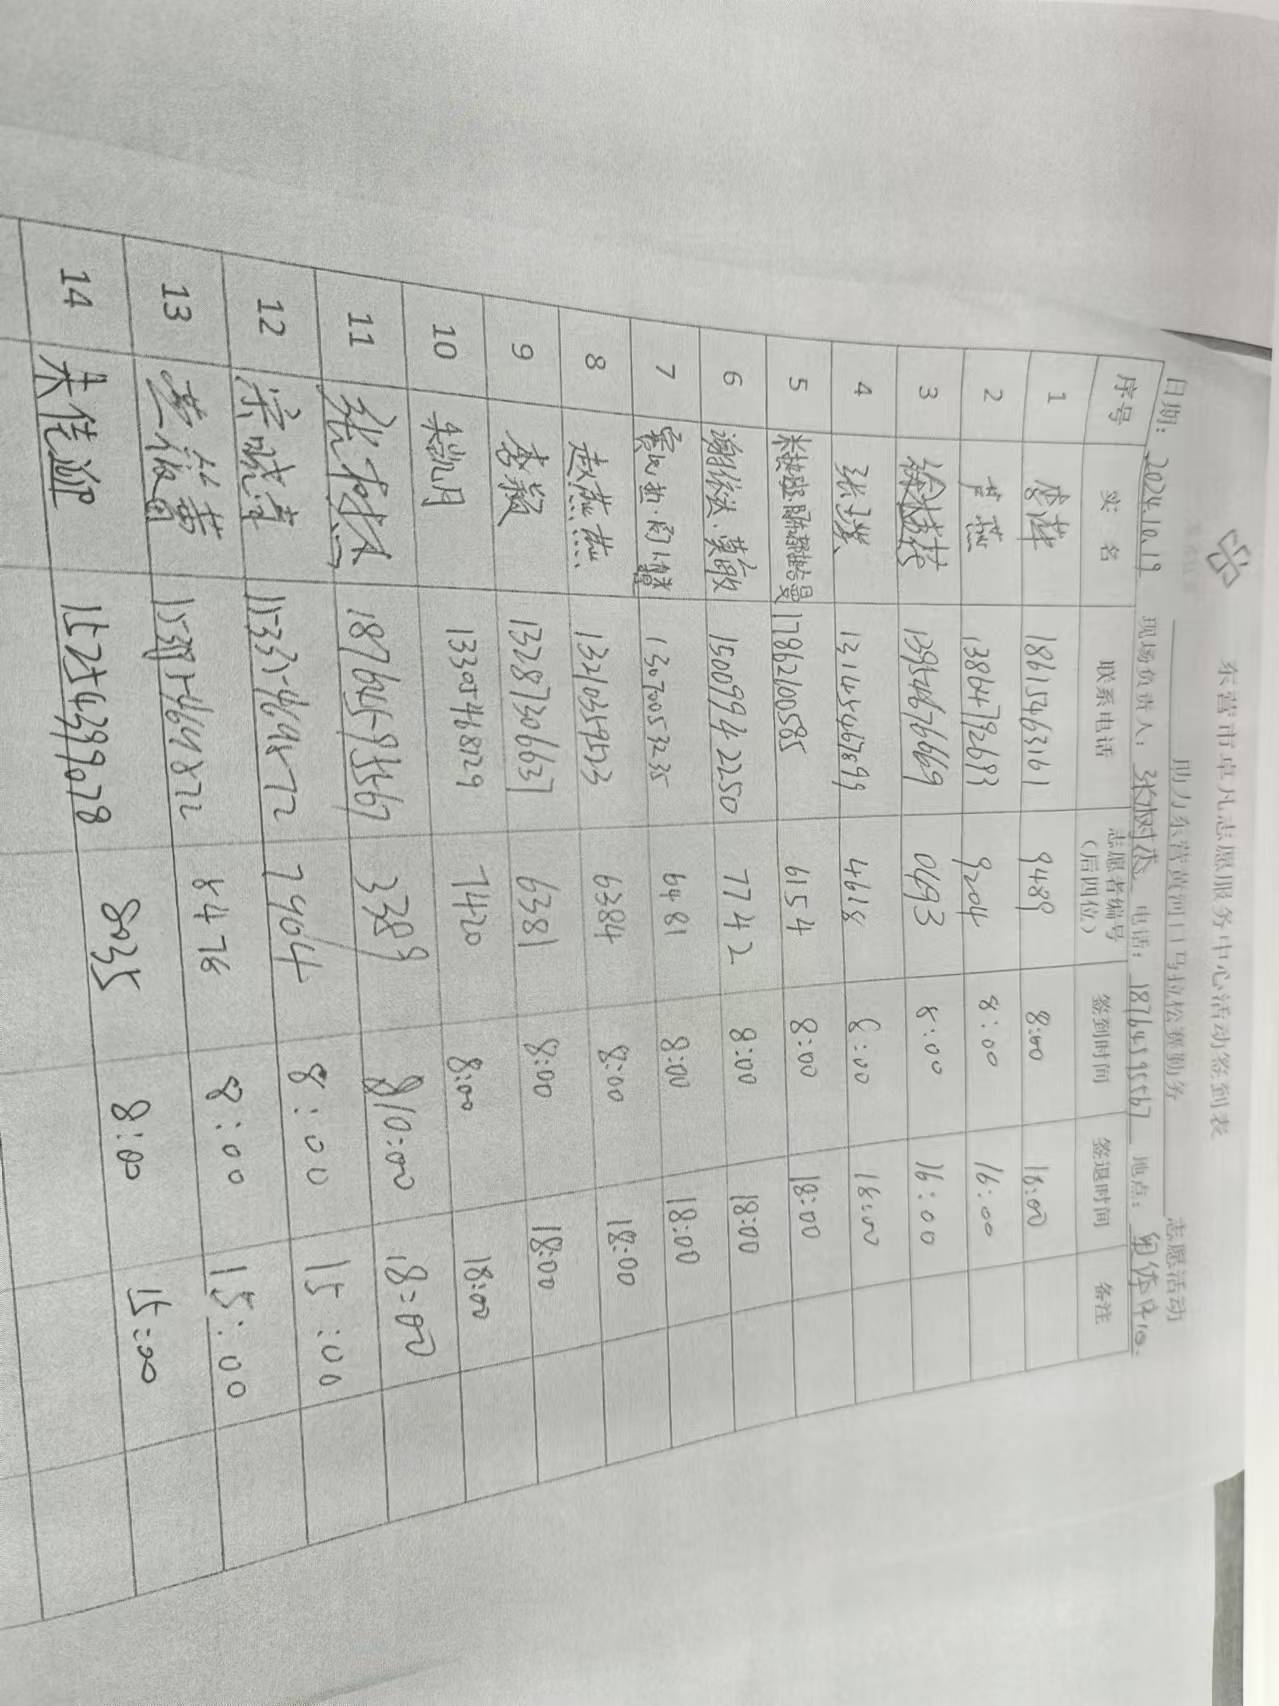 东营市卓凡志愿服务中心活动签到表
助力东营黄河口马拉松赛勤务 志愿活动
日期：2024.10.19 现场负责人：张树杰 电话：18764595567 地点：
序号 实名 联系电话 志愿者编号（后四位） 签到时间 签退时间 备注
1 18615463161 9489 8:00 18:00
2 13864782683 9204 8:00 16:00
3 13954676669 0693 8:00 16:00
4 13145467899 4618 8:00 18:00
5 17862100585 6154 8:00 18:00
6 15009942250 7742 8:00 18:00
7 13070053235 6481 8:00 18:00
8 赵燕燕 13210359523 6384 8:00 18:00
9 李颖 13287306637 6381 8:00 18:00
10 朱凯月 13305468129 7420 8:00 18:00
11 张树杰 18764595567 3389 10:00 18:00
12 宋晓青 15335469872 7904 8:00 15:00
13 8476 8:00 15:00
14 朱佳迎 15254639628 8035 8:00 15:00